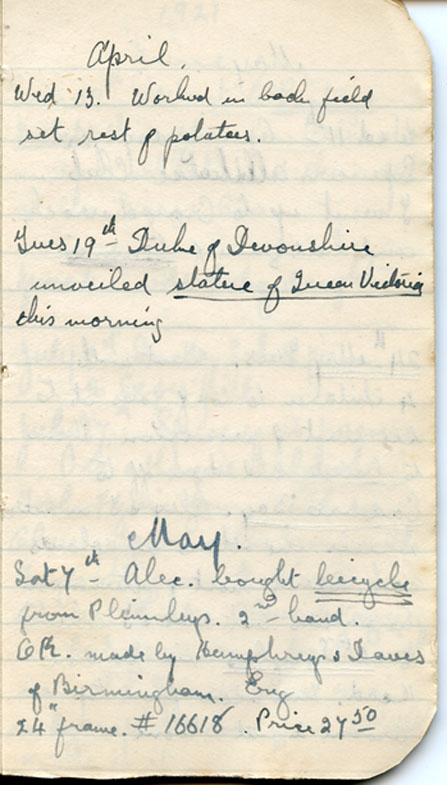 April.
Wed 13. Worked in back field
set rest of potatoes.
Tues 19th Duke of Devonshire
unveiled statue of Queen Victoria
this morning
May.
Sat 7th Alec. bought bicycle
from Plimleys. 2nd hand.
OK. made by Humphreys & Dawes
of Birmingham. Eng
24" frame. # 16618. Price 27 50